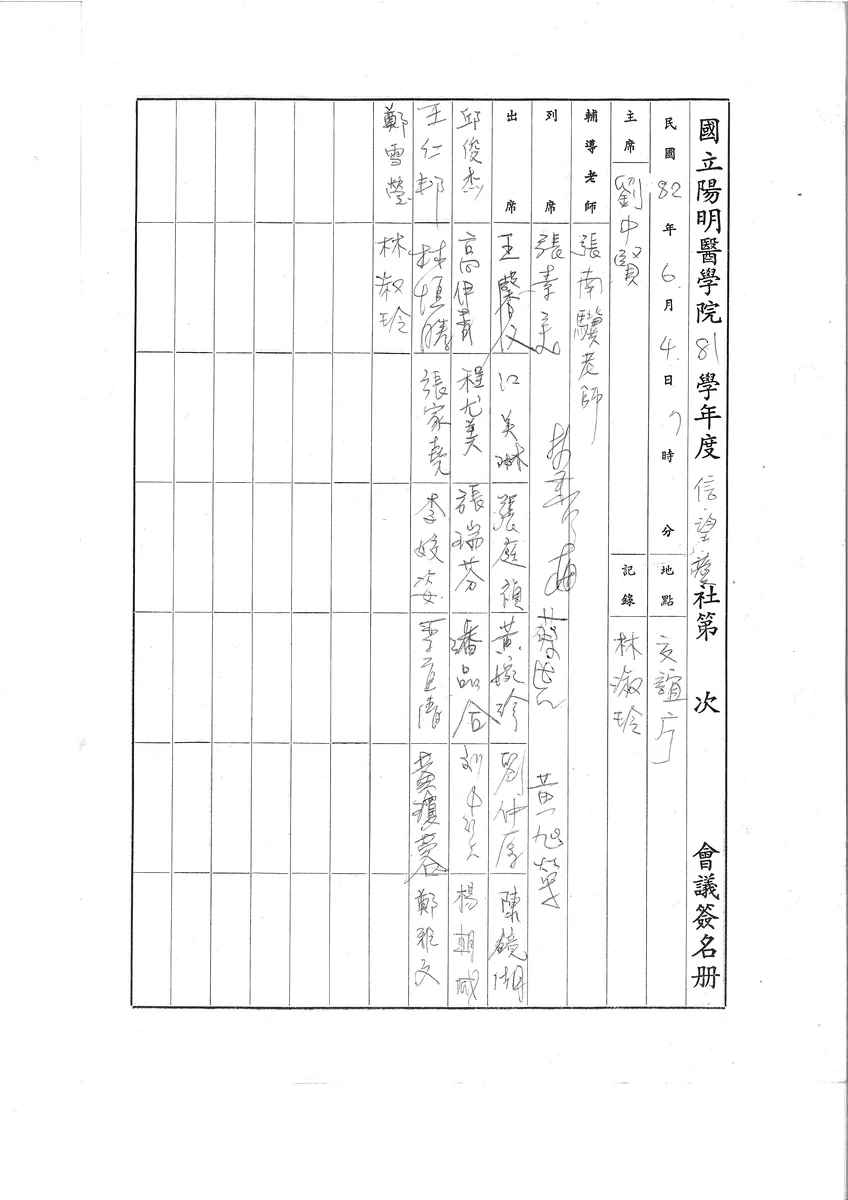 國立陽明醫學院81學年度信望愛社第 次 會議簽名冊
民國82年6月4日 時 分 地點 交誼廳
主席 劉中賢 記錄 林淑玲
輔導老師 張南驥老師
列席 張素美 黃旭
出席 王馨 江美琳 張庭禎 黃婉珍 劉仲 陳鏡湖
邱俊杰 高伊青 程尤美 張瑞芬 潘品合 楊朝
王仁邦 林恒勝 張家堯 李姣姿 李宜倩 黃瓊蓉 鄭雅文
鄭雪瑩 林淑玲